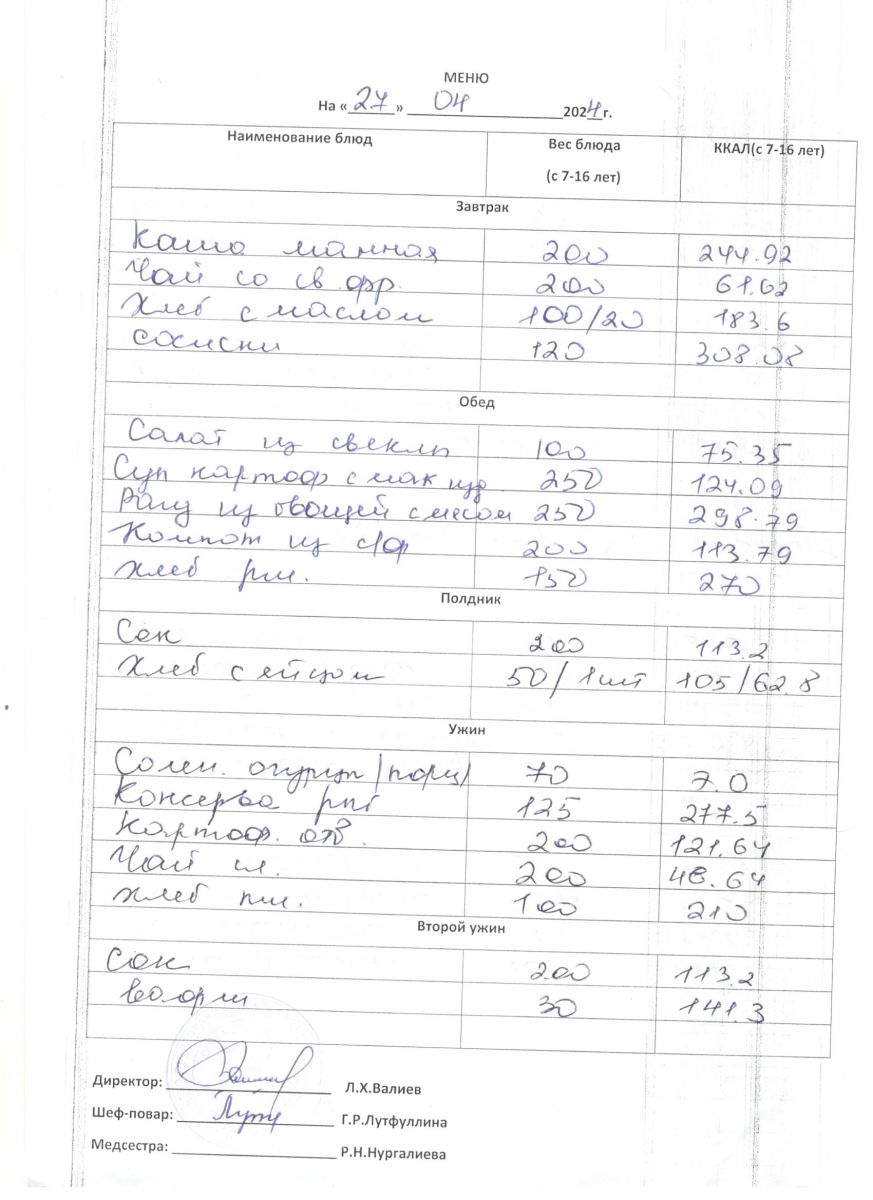 МЕНЮ
На « 27 » 04 2024 г.
Наименование блюд Вес блюда (с 7-16 лет) ККАЛ(с 7-16 лет)
Завтрак
Каша манная 200 244.92
Чай со св фр. 200 61.62
Хлеб с маслом 100/20 183.6
сосиски 120 308.08
Обед
Салат из свеклы 100 75.35
Суп картоф с мак изд 250 124.09
Рагу из овощей с мясом 250 298.79
Компот из с/ф 200 113.79
хлеб рж. 150 270
Полдник
Сок 200 113.2
Хлеб с яйцом 50/1шт 105/62.8
Ужин
Солен. огурцы /порц/ 70 7.0
Консерва рыб 125 277.5
Картоф. отв. 200 121.64
Чай сл. 200 48.64
хлеб пш. 100 210
Второй ужин
Сок 200 113.2
вафли 30 141.3
Директор: Л.Х.Валиев
Шеф-повар: Г.Р.Лутфуллина
Медсестра: Р.Н.Нургалиева